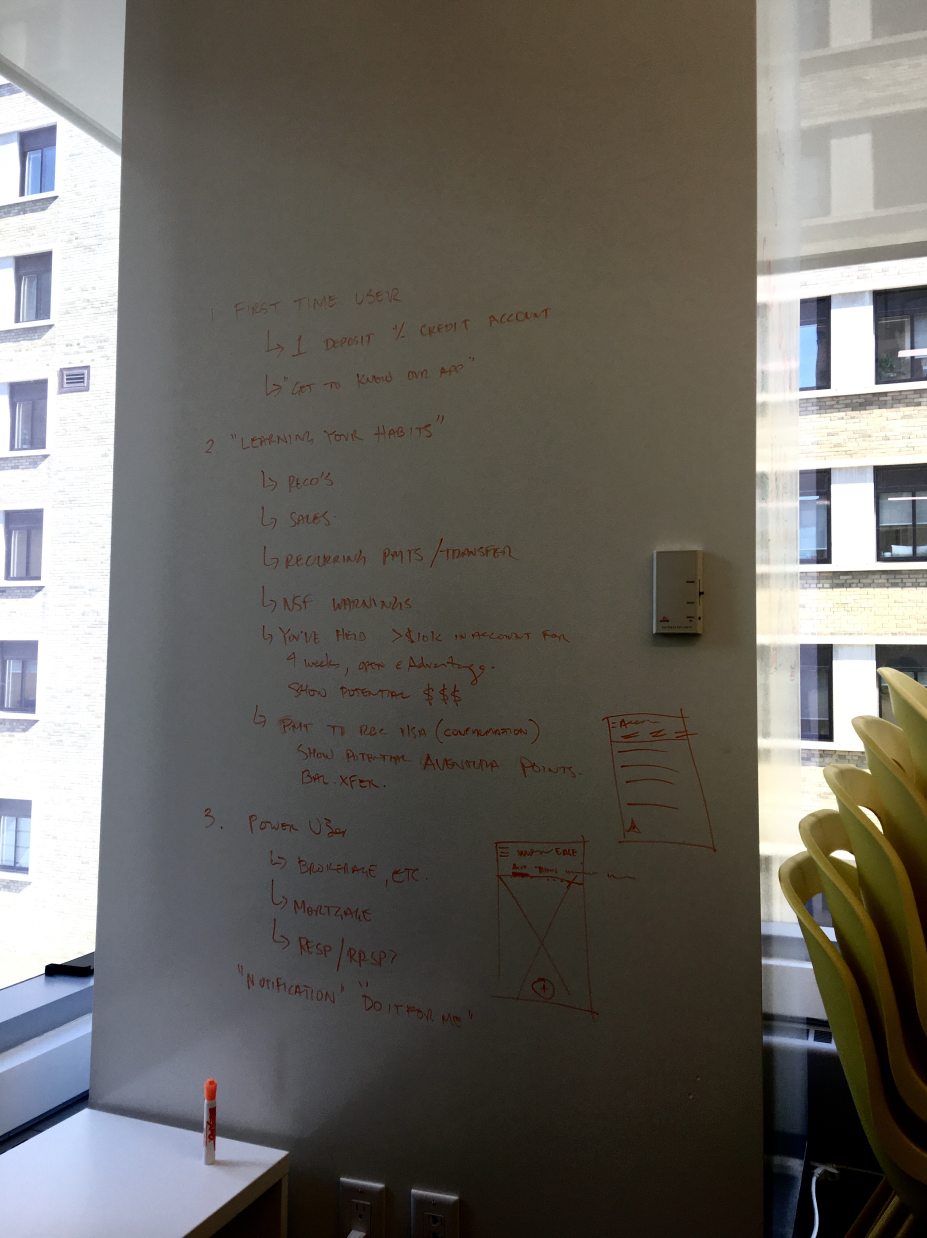 1 FIRST TIME USER
↳ 1 DEPOSIT % CREDIT ACCOUNT
↳ "GET TO KNOW OUR APP"
2 "LEARNING YOUR HABITS"
↳ RECO'S
↳ SALES.
↳ RECURRING PMTS / TRANSFER
↳ NSF WARNINGS
↳ YOU'VE HELD >$10K IN ACCOUNT FOR
4 weeks, open eAdvantage.
SHOW POTENTIAL $$$
↳ PMT TO RBC VISA (CONFIRMATION)
SHOW POTENTIAL AVENTURA POINTS.
BAL. XFER.
3. POWER USER
↳ BROKERAGE, ETC.
↳ MORTGAGE
↳ RESP/RRSP?
"NOTIFICATION" "DO IT FOR ME"